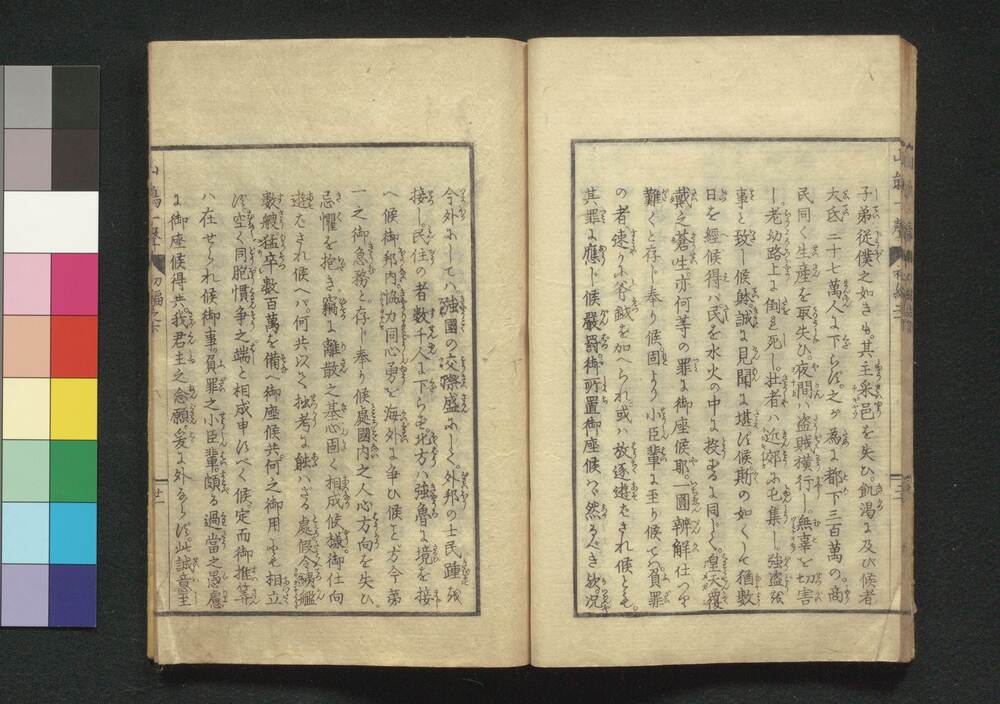 子弟従僕之如きも。其主采邑を失ひ。飢渇に及び候者
大凡二十七萬人に下らず。之が為に都下三百萬の。商
民同く生産を取失ひ。夜間ハ盗賊横行し。無辜を切害
し老幼路上に倒れ死し。壮者ハ近郊に屯集し。強盗を
事と致し候。誠に見聞に堪ず候斯の如くして猶数
日を經候得ハ民を水火の中に投ずるに同じ。皇天覆
戴之蒼生。亦何等の罪に御座候耶。一圓辨解仕つり
難くと存じ奉り候。固より小臣輩に至り候てハ。負罪
の者速かに斧鉞を加へられ或ハ放逐遊され候とも。
其罪に應じ候嚴罰御所置御座候ハヽ然るべき歟。況
今外にしてハ強國の交際盛にして。外邦の士民踵を
接し。民住の者数千人に下らず。北方ハ強魯に境を接
へ候御邦内協力同心勇を海外に争ひ候こと方今第
一之御急務と。存じ奉り候處國内之人心方向を失ひ
忌懼を抱き。竊に離散之基心固く相成候様御仕向
遊され候ヘバ。何共以て拙考に触ハざる處假令勇艦
数艘猛卒数百萬を備へ御座候共何之御用にも相立
ず空く同胞憤争之端と相成申すべく候。定而御推算
ハ在せられ候御事。負罪之小臣輩。頗る過當之愚慮
に御座候得共。我君主之念願爰に外ならず。此誠意呈
初編之下
廿一